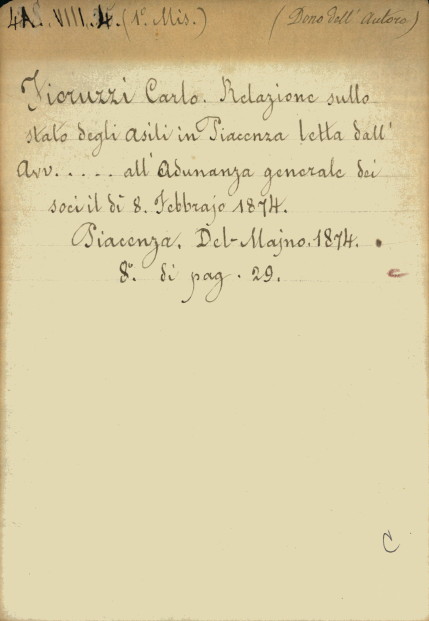 4A. VIII. 34. (1º. Mis.) (Dono dell'Autore)
Fioruzzi Carlo. Relazione sullo
stato degli asili in Piacenza letta dall'
Avv. . . . . . all'Adunanza generale dei
soci il dì 8. Febbrajo 1874.
Piacenza. Del-Majno. 1874.
8º. di pag. 29.
C